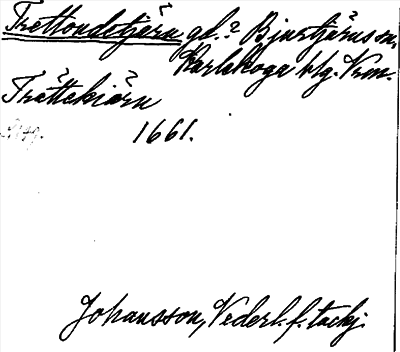 Trettondetjärn gd.? Bjurtjärns sn,
Karlskoga blg. Vrm.
Trättekiärn
1661.
Johansson, Vederl. f. tackj.